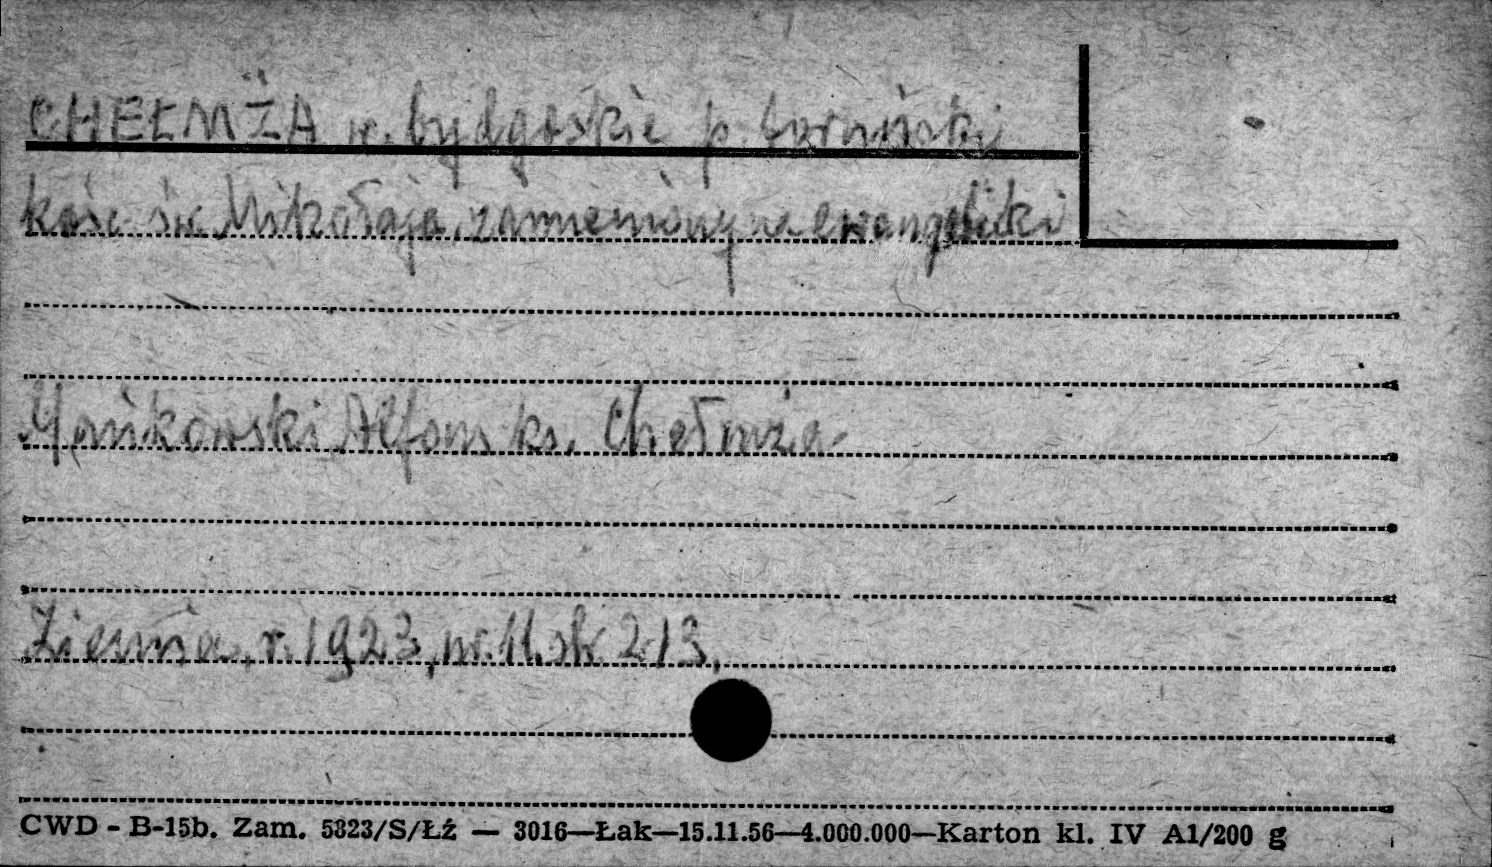 CHEŁMŻA w. bydgoskie p. toruński
kość św. Mikołaja, zamieniony na ewangelicki
Mańkowski Alfons ks. Chełmża.
Ziemia, r. 1923, nr. 11. str 213.
CWD - B-15b. Zam. 5323/S/Łź — 3016—Łak—15.11.56—4.000.000—Karton kl. IV A1/200 g